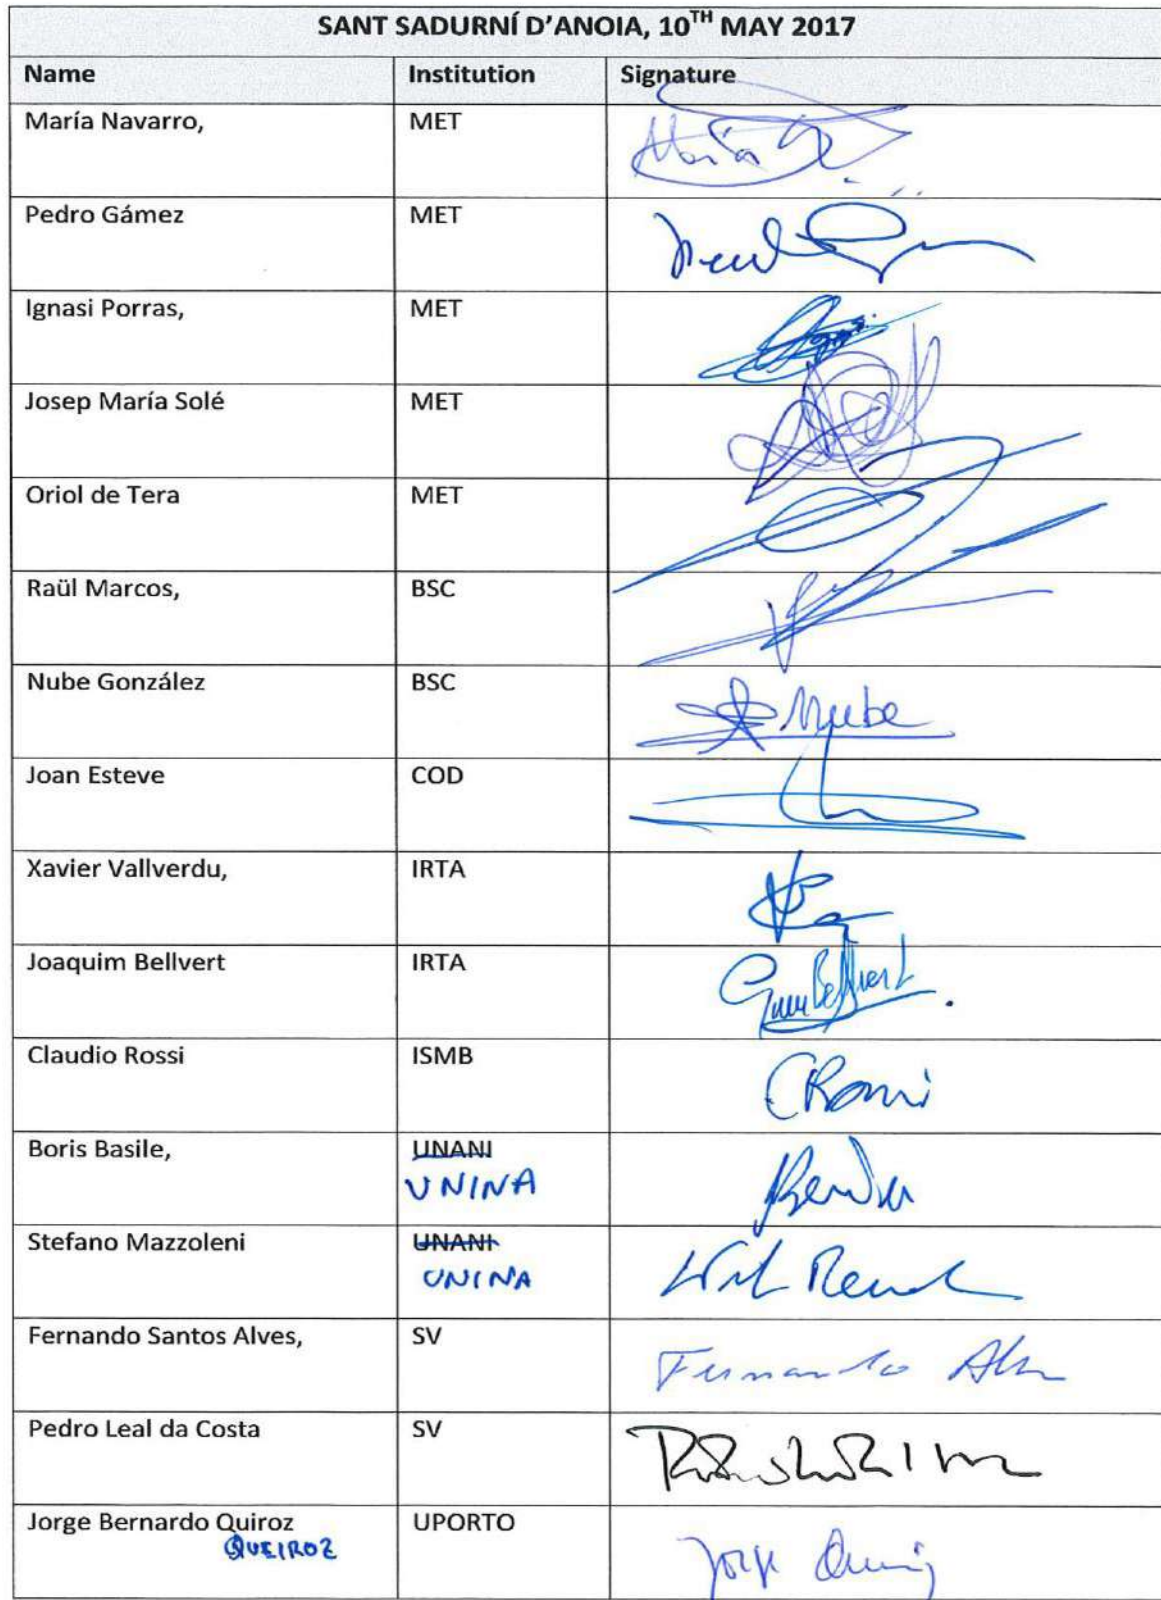 SANT SADURNÍ D'ANOIA, 10TH MAY 2017
Name Institution Signature
María Navarro, MET María
Pedro Gámez MET
Ignasi Porras, MET
Josep María Solé MET
Oriol de Tera MET
Raül Marcos, BSC
Nube González BSC Nube
Joan Esteve COD
Xavier Vallverdu, IRTA
Joaquim Bellvert IRTA Quim Bellvert
Claudio Rossi ISMB CRossi
Boris Basile, UNANI
UNINA
Stefano Mazzoleni UNANI
UNINA
Fernando Santos Alves, SV Fernando Alves
Pedro Leal da Costa SV
Jorge Bernardo Quiroz UPORTO Jorge Queiroz
QUEIROZ